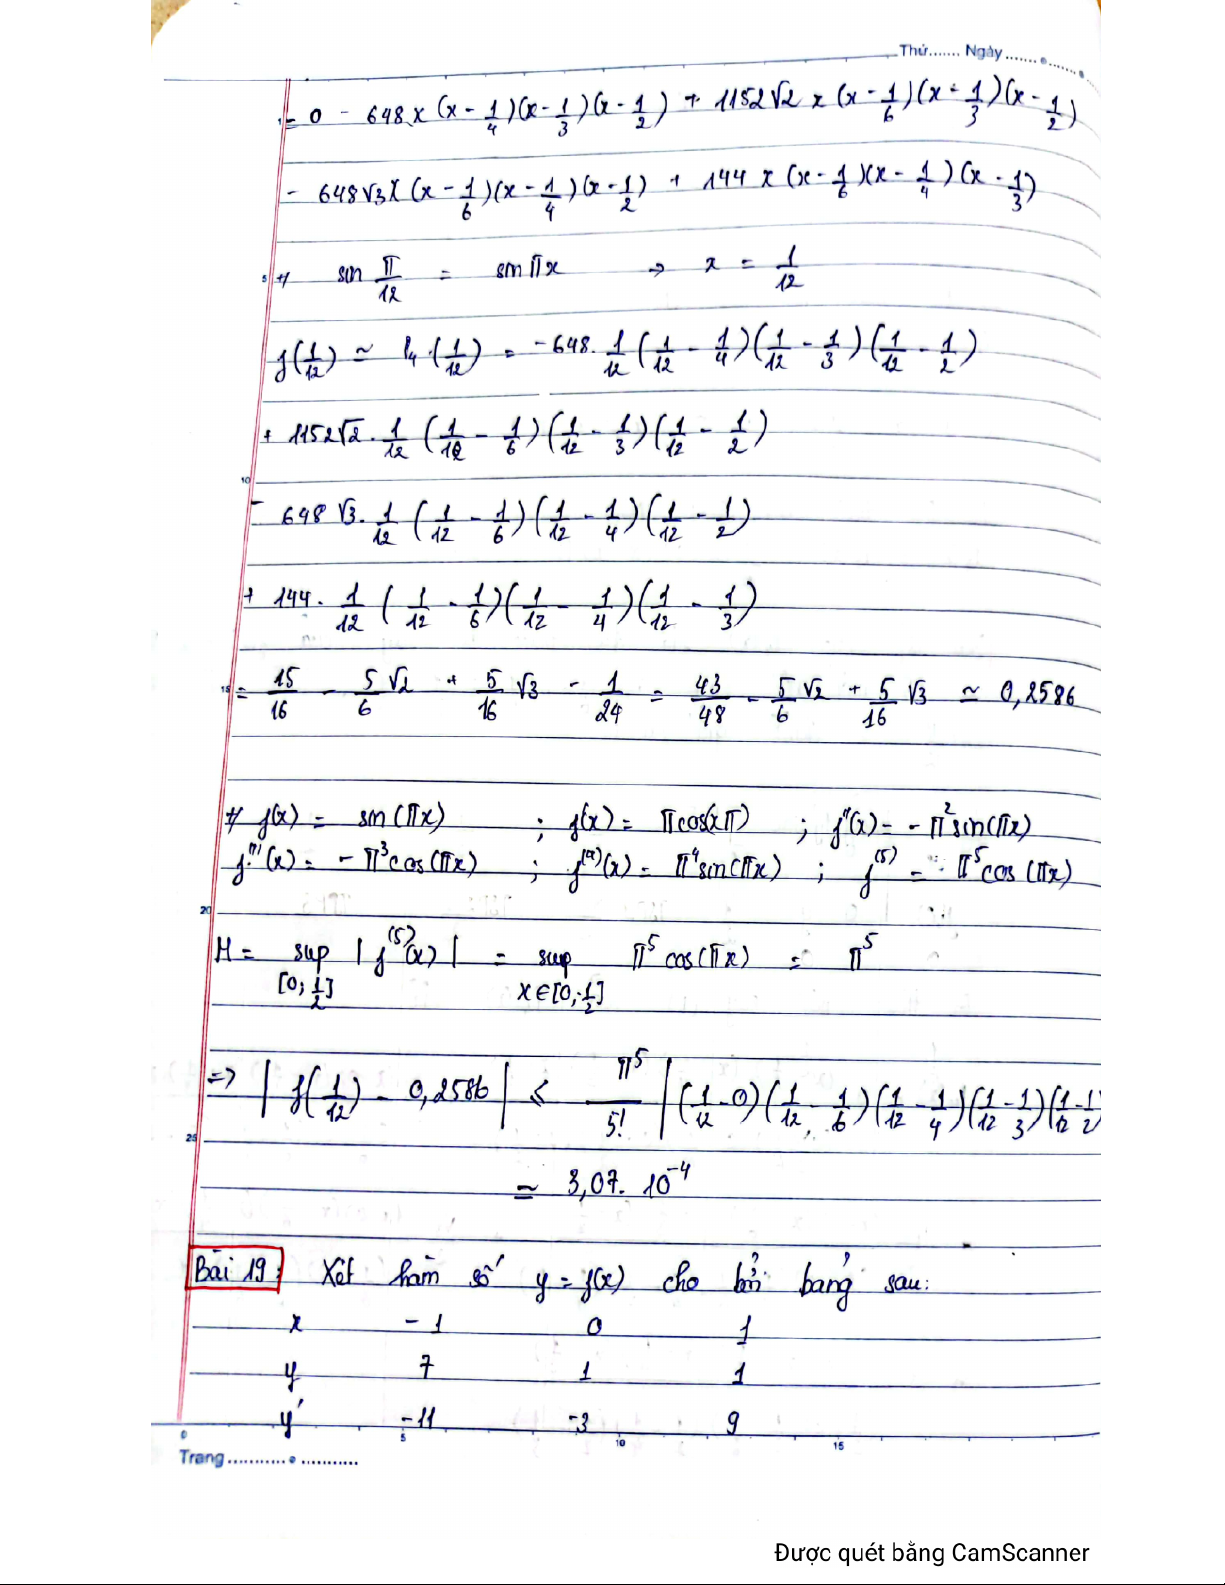 Thứ....... Ngày ....................
= 0 - 648x(x - 1/4)(x - 1/3)(x - 1/2) + 1152√2 x (x - 1/6)(x - 1/3)(x - 1/2)
- 648√3 x (x - 1/6)(x - 1/4)(x - 1/2) + 144 x (x - 1/6)(x - 1/4)(x - 1/3)
5 +/ sin π/12 = sin πx → x = 1/12
f(1/12) ≃ P4 (1/12) = -648. 1/12 (1/12 - 1/4)(1/12 - 1/3)(1/12 - 1/2)
+ 1152√2. 1/12 (1/12 - 1/6)(1/12 - 1/3)(1/12 - 1/2)
10
- 648√3. 1/12 (1/12 - 1/6)(1/12 - 1/4)(1/12 - 1/2)
+ 144. 1/12 (1/12 - 1/6)(1/12 - 1/4)(1/12 - 1/3)
15 = 15/16 - 5/6 √2 + 5/16 √3 - 1/24 = 43/48 - 5/6 √2 + 5/16 √3 ≃ 0,2586
+/ f(x) = sin(πx) ; f'(x) = πcos(xπ) ; f''(x) = -π²sin(πx)
f'''(x) = -π³cos(πx) ; f⁽⁴⁾(x) = π⁴sin(πx) ; f⁽⁵⁾ = π⁵cos(πx)
20
M = sup [0; 1/2] | f⁽⁵⁾(x) | = sup x∈[0; 1/2] π⁵cos(πx) = π⁵
=> | f(1/12) - 0,2586 | ≤ π⁵/5! | (1/12 - 0)(1/12 - 1/6)(1/12 - 1/4)(1/12 - 1/3)(1/12 - 1/2)
25
≃ 3,07. 10⁻⁴
Bài 19: Xét hàm số y = f(x) cho bởi bảng sau:
x -1 0 1
y 7 1 1
y' -11 -3 9
0 5 10 15
Trang ........................
Được quét bằng CamScanner